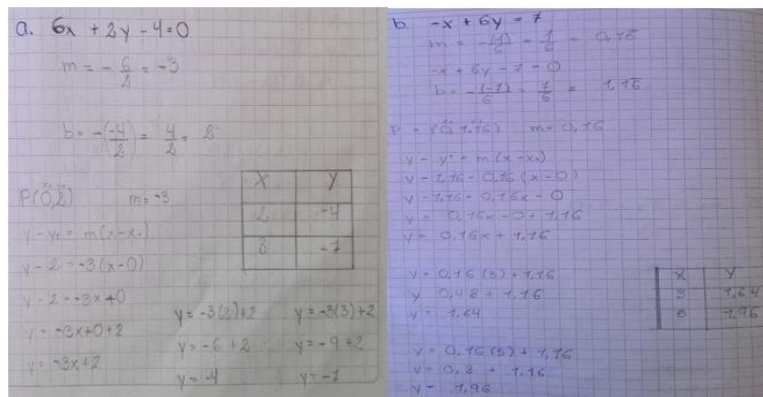 a. 6x + 2y - 4 = 0
m = - 6/2 = -3
b = -(-4/2) = 4/2 = 2
P(0,2) m = -3
x y
2 -4
3 -7
y - y₁ = m(x - x₁)
y - 2 = -3(x - 0)
y - 2 = -3x + 0
y = -3x + 0 + 2
y = -3x + 2
y = -3(2) + 2
y = -6 + 2
y = -4
y = -3(3) + 2
y = -9 + 2
y = -7
b. -x + 6y = 7
m = -(-1)/6 = 1/6 = 0,16
-x + 6y - 7 = 0
P = (0, 1,16) m = 0,16
y - y₁ = m(x - x₁)
y - 1,16 = 0,16(x - 0)
y - 1,16 = 0,16x - 0
y = 0,16x - 0 + 1,16
y = 0,16x + 1,16
y = 0,16(3) + 1,16
y 0,48 + 1,16
y = 1,64
x y
3 1,64
5 1,96
y = 0,16(5) + 1,16
y = 0,8 + 1,16
y = 1,96